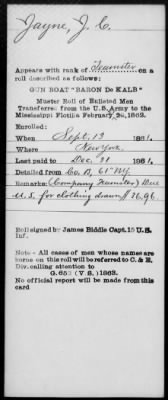 Jayne, J. C.
Appears with rank of Teamster on a
roll described as follows:
GUN BOAT "BARON De KALB"
Muster Roll of Enlisted Men
Transferred from the U.S. Army to the
Mississippi Flotilla February 1862.
Enrolled:
When Sept. 13 1861.
Where New York.
Last paid to Dec. 31 1861.
Detailed from Co. D, 65" N.Y.
Remarks: (Company Teamster) Due
U.S. for clothing drawn $36.96.
Roll signed by: James Biddle Capt. 15 U.S.
Inf.
Note - All cases of men whose names are
borne on this roll will be referred to C. & E.
Div. calling attention to
G. 653 (V S.) 1863.
No official report will be made from this
card